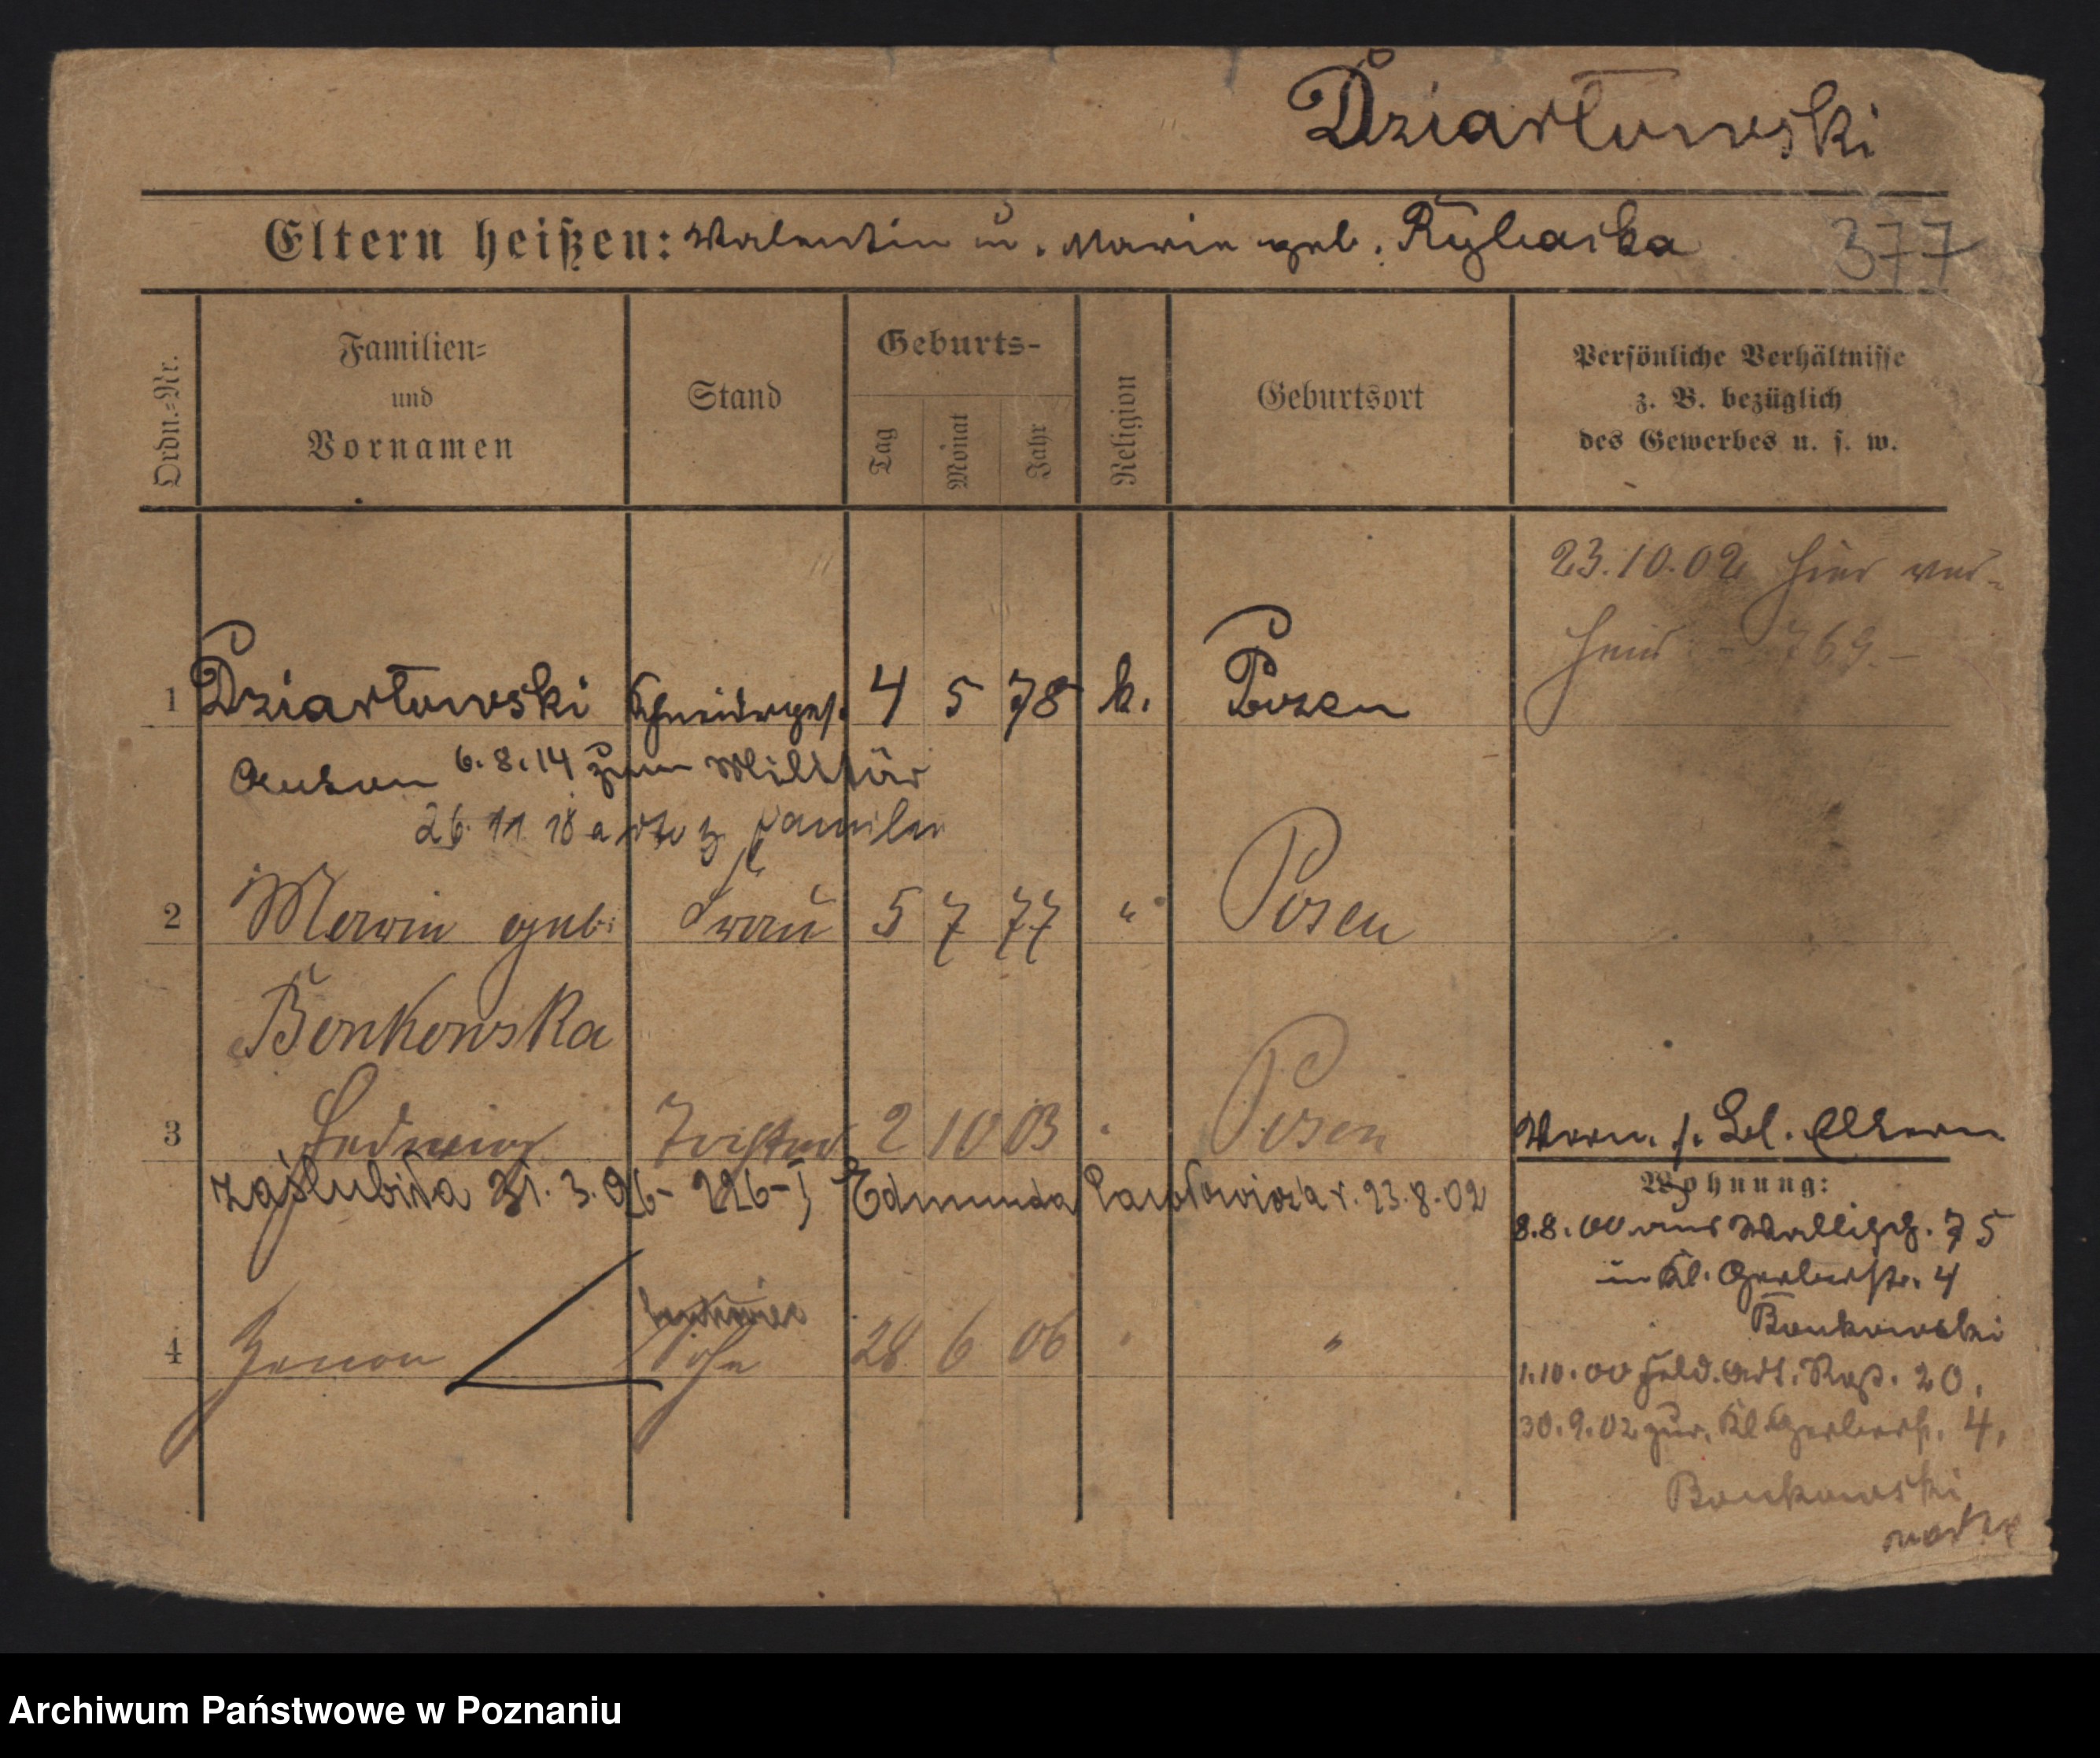 Dziartowski
Eltern heißen: Valentin u. Marie geb. Rybarka
377
Ordn.=Nr.
Familien=
und
Vornamen
Stand
Geburts-
Tag
Monat
Jahr
Religion
Geburtsort
Persönliche Verhältnisse
z. B. bezüglich
des Gewerbes u. s. w.
23.10.02 hier ver-
heir 769.-
1 Dziartowski Schneiderges. 4 5 78 k. Posen
Anton 6.8.14 zum Militär
26. 11 18 z Familie
2 Marie geb. Frau 5 7 77 " Posen
Bonkowska
3 Hedwig Tochter 2 10 03 " Posen
Vorm. s. Bl. Eltern
zaślubiła 31. 3. 26- 226-I Edmunda Pawłowicza r. 23.8.02
4 Zenon Sohn 28 6 06 " "
Wohnung:
8.8.00 aus Wallisch. 75
in Kl. Gerberstr. 4
Bonkowski
1.10.00 Feld. Art. Rgt. 20.
30.9.02 zur. Kl Gerberstr. 4.
Bonkowski
Archiwum Państwowe w Poznaniu